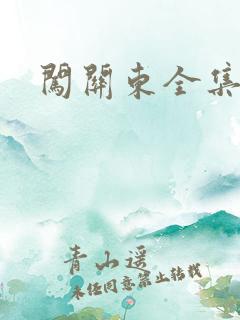 闖關東全集
青山遥
未经同意禁止转载